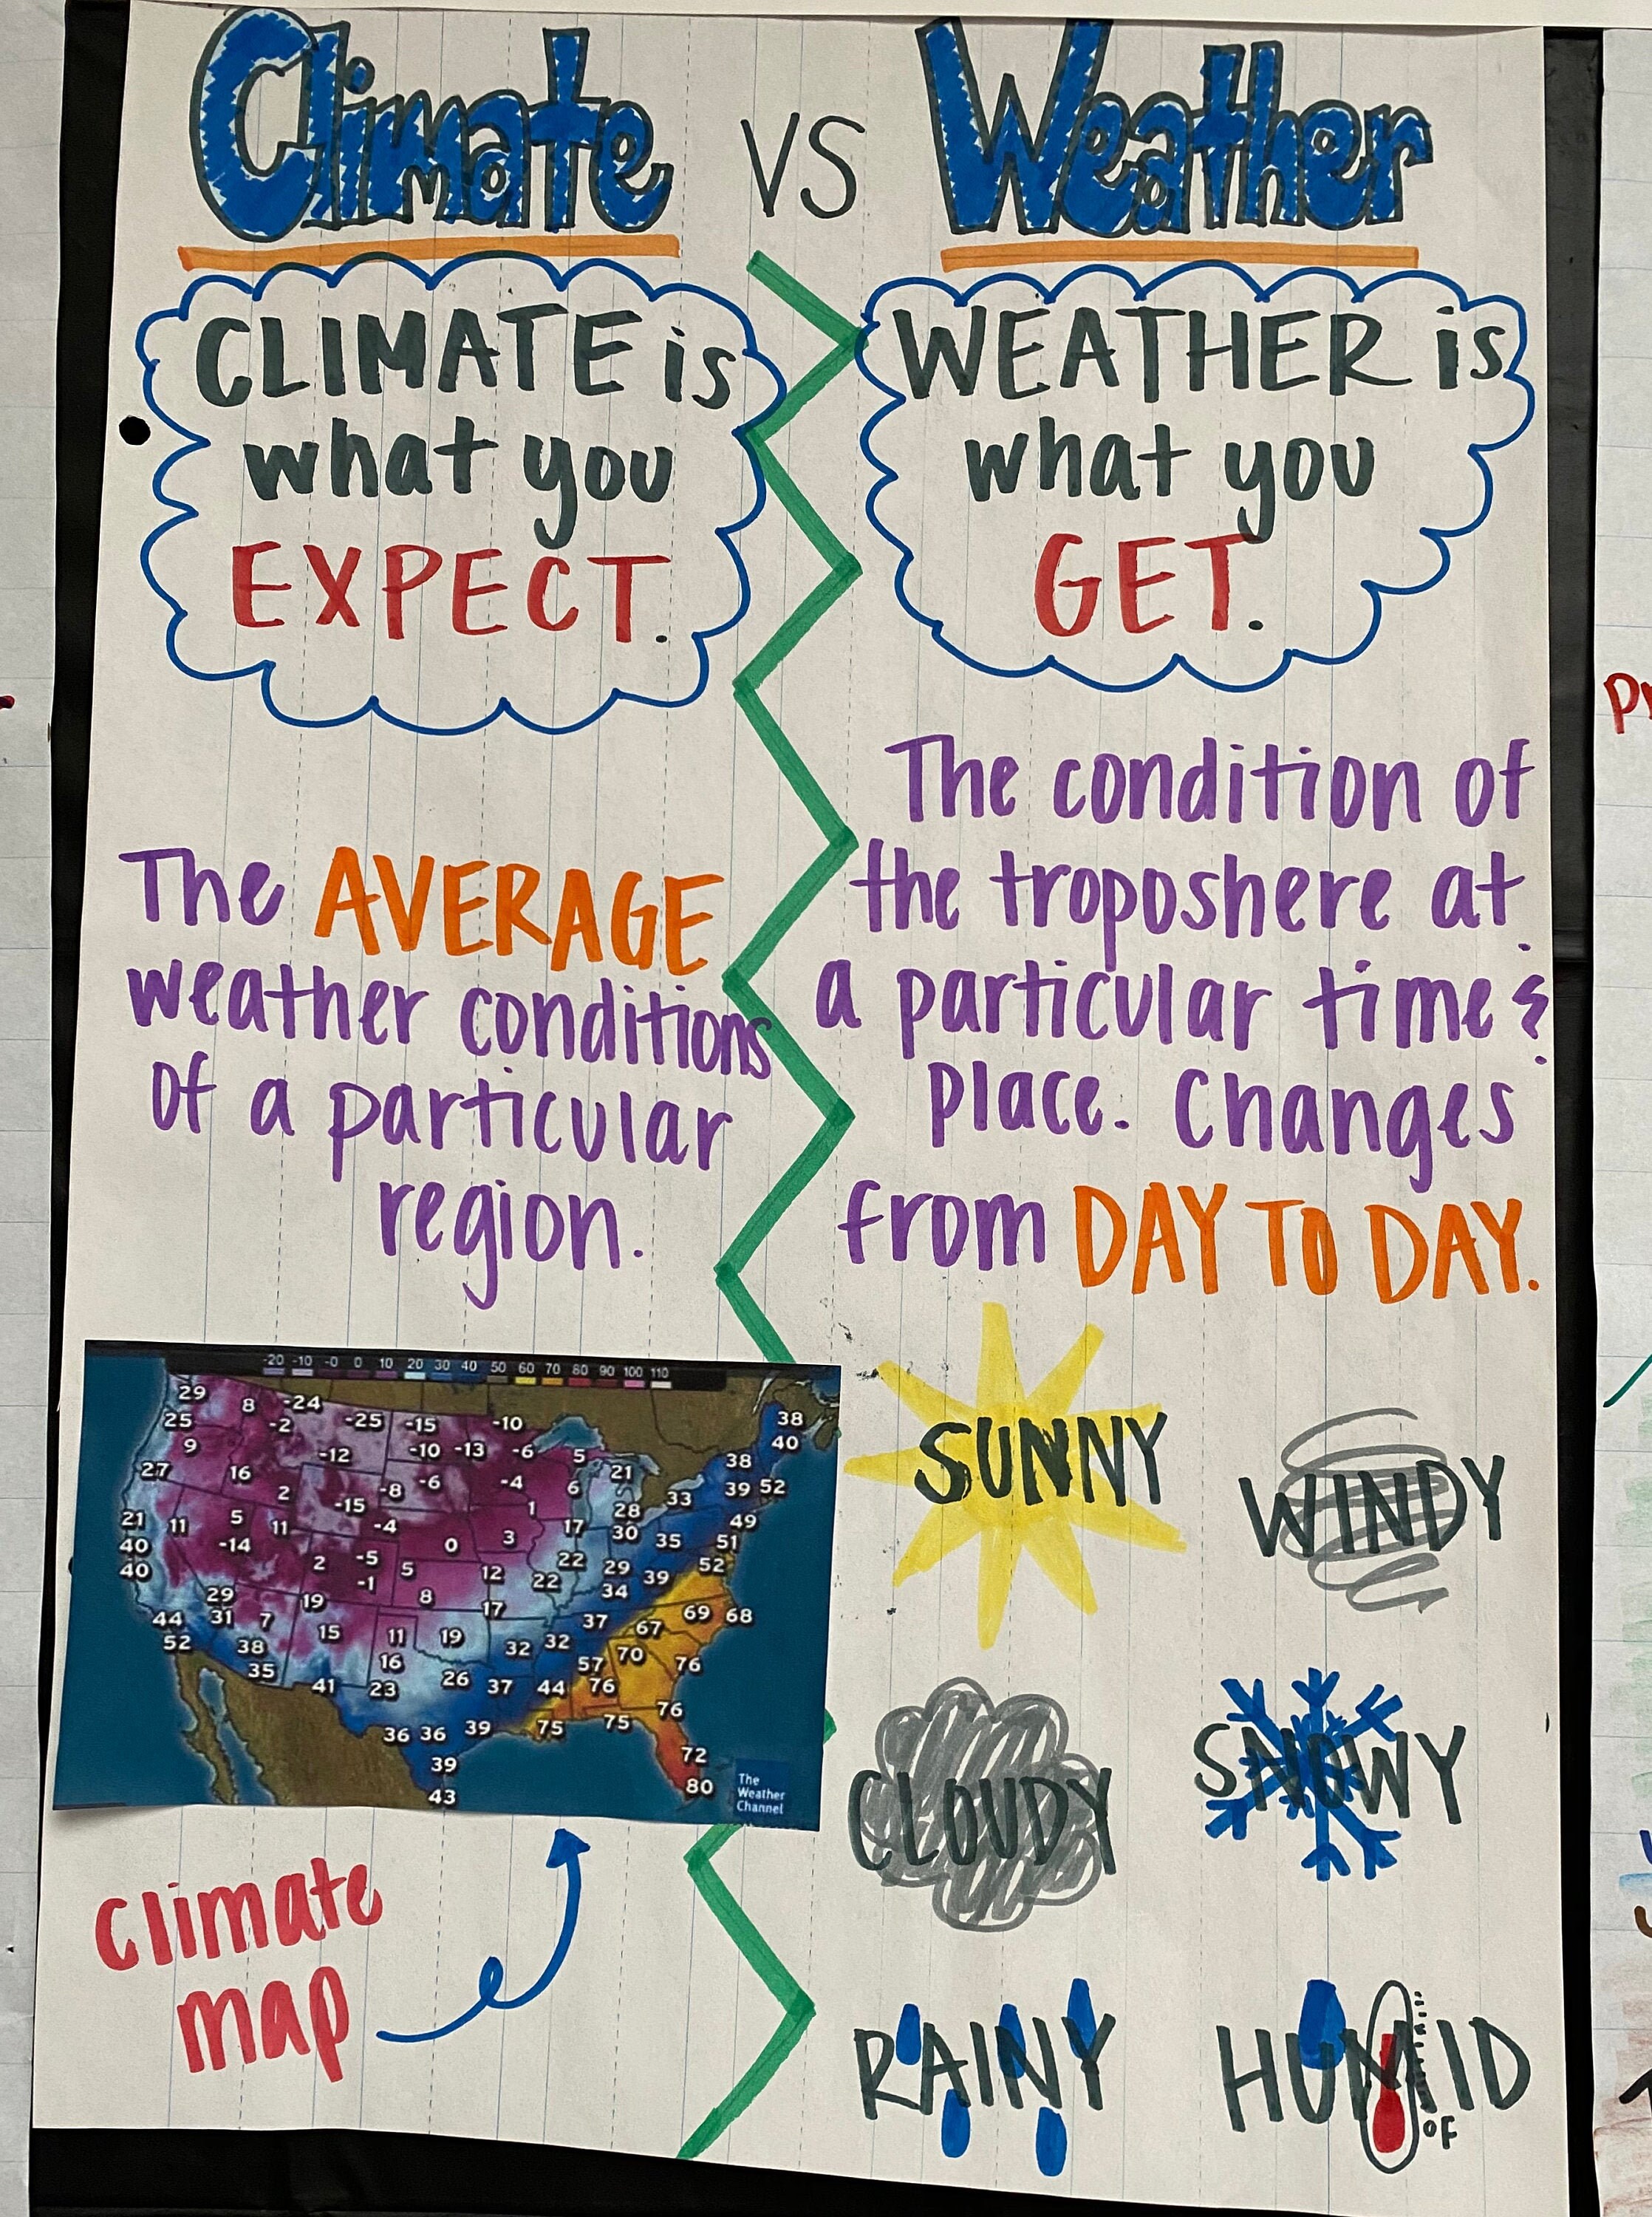 Climate vs Weather
CLIMATE is
what you
EXPECT.
The AVERAGE
weather conditions
of a particular
region.
-20 -10 -0 0 10 20 30 40 50 60 70 80 90 100 110
29 8 -24
25 -2 -25 -15 -10 38
9 -12 -10 -13 -6 5 40
27 16 -8 -6 -4 6 21 38
2 -15 1 28 33 39 52
21 11 5 11 -4 17 30 35 49
40 -14 0 3 51
40 2 -5 5 12 22 29 39 52
29 -1 8 22 34
44 31 7 19 17 37 67 69 68
52 38 15 11 19 32 32 70
35 16 57 76
41 23 26 37 44 76
36 36 39 75 75 76
39 72
43 80
The
Weather
Channel
climate
map
WEATHER is
what you
GET.
The condition of
the troposhere at
a particular time &
place. Changes
from DAY TO DAY.
SUNNY
WINDY
CLOUDY
SNOWY
RAINY
HUMID
°F